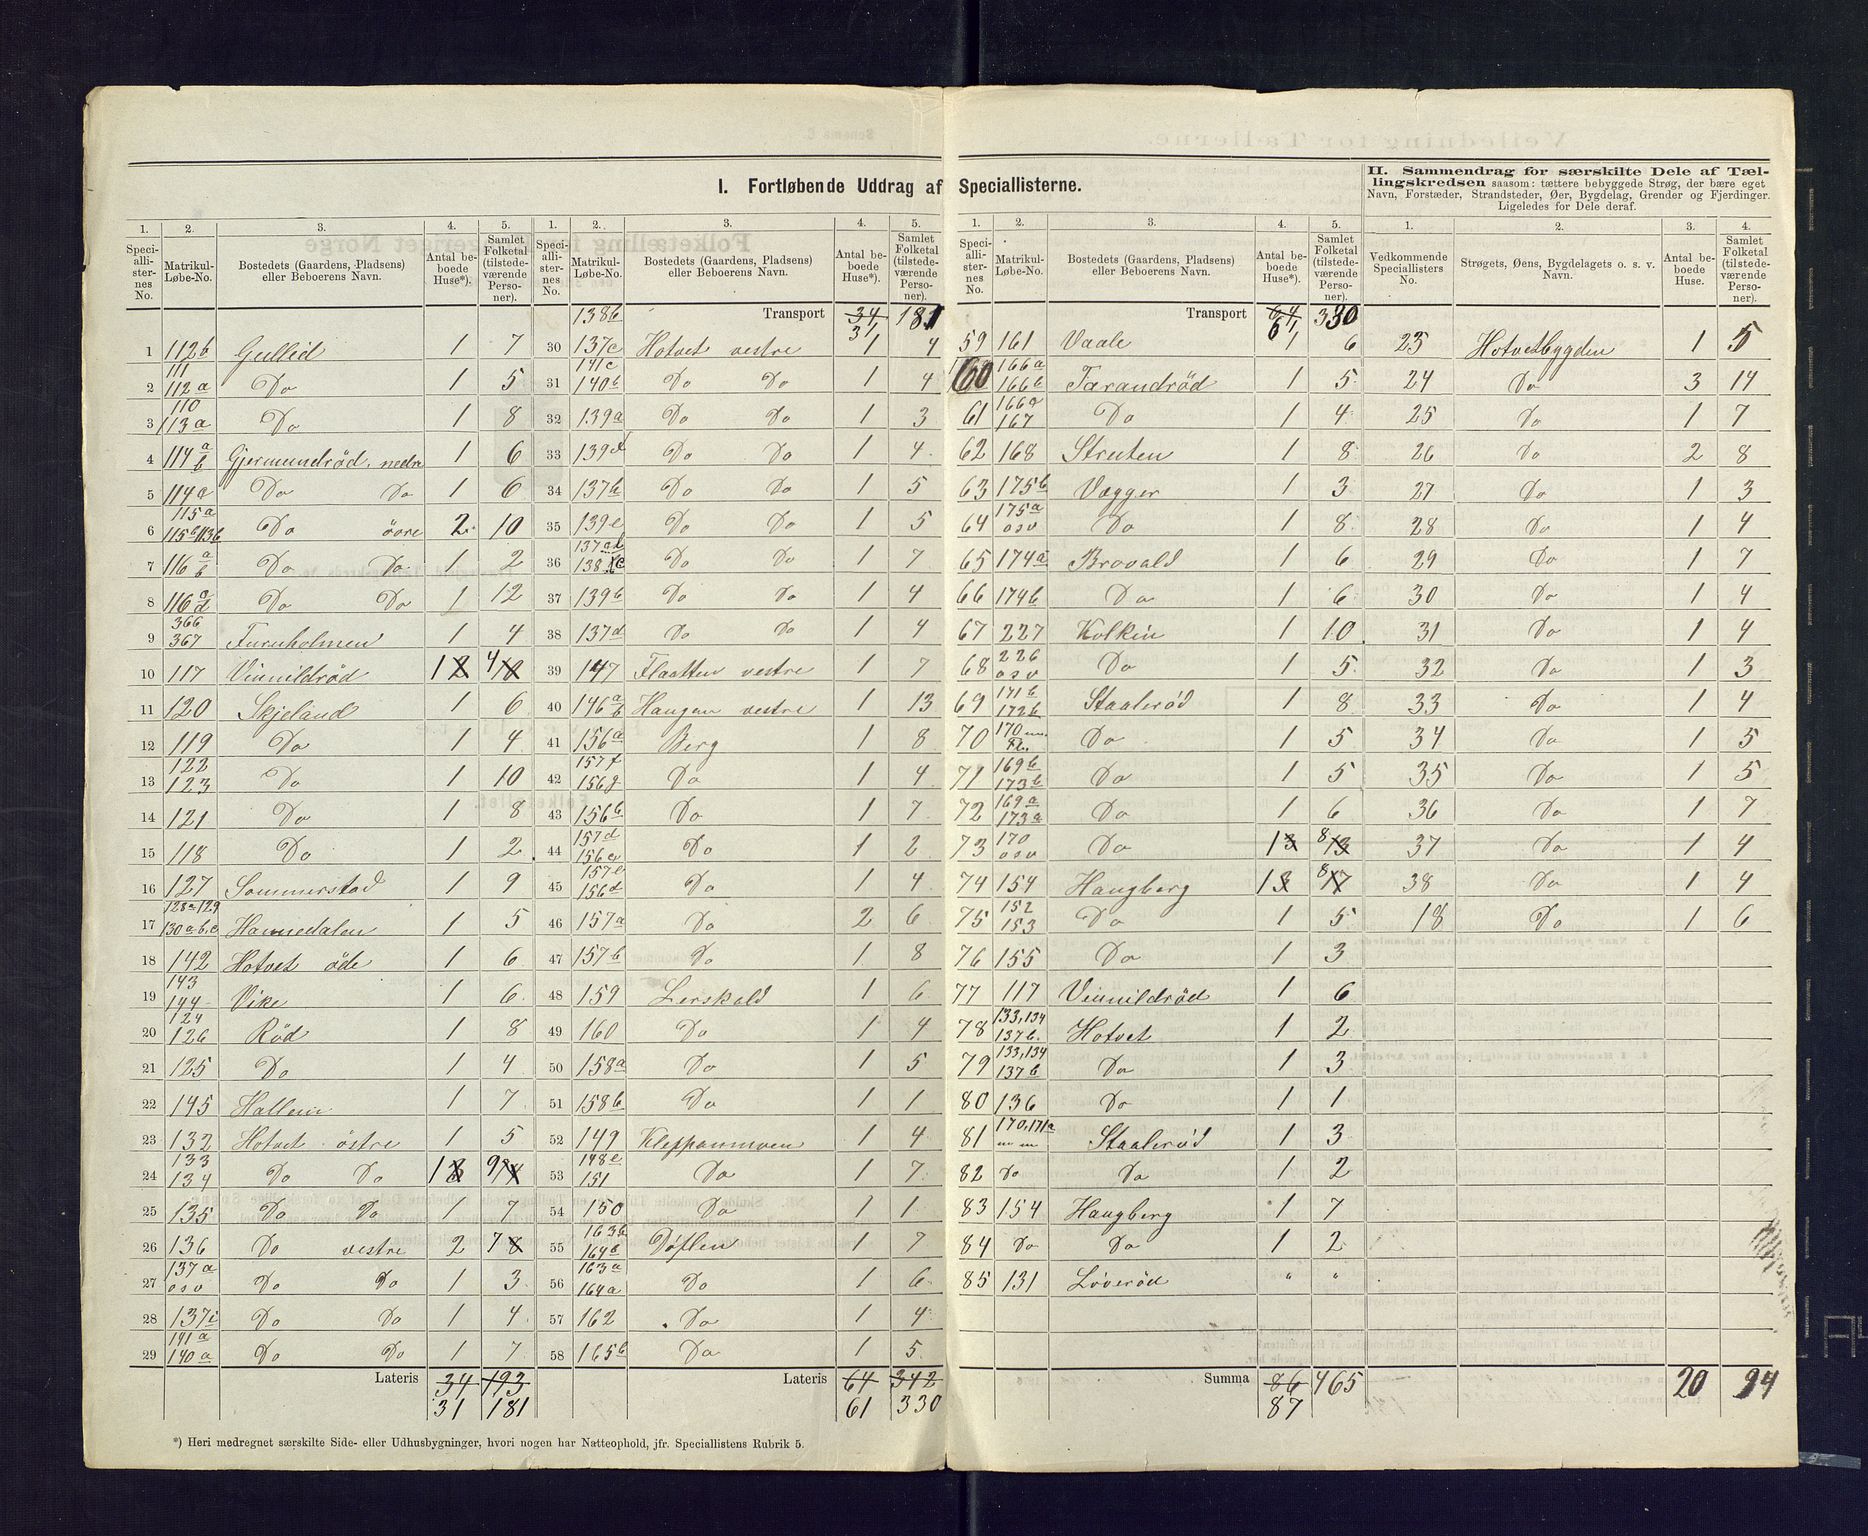 I. Fortløbende Uddrag af Speciallisterne.
II. Sammendrag for særskilte Dele af Tællingskredsen saasom: tættere bebyggede Strøg, der bære eget
Navn, Forstæder, Strandsteder, Øer, Bygdelag, Grender og Fjerdinger.
Ligeledes for Dele deraf.
1. 2. 3. 4. 5.
Speciallisternes No. Matrikul-Løbe-No. Bostedets (Gaardens, Pladsens) eller Beboerens Navn. Antal beboede Huse*). Samlet Folketal (tilstedeværende Personer).
1 112b Gullid 1 7
2 111 112a Do 1 5
3 110 113a Do 1 8
4 114 a b Gjermundrød, nedre 1 6
5 114c Do Do 1 6
6 115a 115b 113b Do övre 2 10
7 116 a b Do Do 1 2
8 116 a d Do Do 1 12
9 366 367 Furuholmen 1 4
10 117 Vinnildrød 1 4
11 120 Skjeland 1 6
12 119 Do 1 4
13 122 123 Do 1 10
14 121 Do 1 8
15 118 Do 1 2
16 127 Sommerstad 1 9
17 128a-129 130a.b.c Hannedalen 1 5
18 142 Hotvet øde 1 6
19 143 144 Vike 1 6
20 124 126 Rød 1 8
21 125 Do 1 4
22 145 Hallem 1 7
23 132 Hotvet östre 1 5
24 133 134 Do Do 1 9
25 135 Do Do 1 7
26 136 Do vestre 2 7
27 137a osv Do Do 1 3
28 137i Do Do 1 4
29 141a 140a Do Do 1 7
Lateris 34 193
31 181
1. 2. 3. 4. 5.
Speciallisternes No. Matrikul-Løbe-No. Bostedets (Gaardens, Pladsens) eller Beboerens Navn. Antal beboede Huse*). Samlet Folketal (tilstedeværende Personer).
138b Transport 34 31 181
30 137c Hotvet vestre 1 4
31 141c 140b Do Do 1 4
32 139a Do Do 1 3
33 139d Do Do 1 4
34 137h Do Do 1 5
35 139c Do Do 1 5
36 Do Do 1 7
37 139b Do Do 1 4
38 137d Do Do 1 4
39 147 Flaatten vestre 1 7
40 146 a b Haugen vestre 1 13
41 156a Berg 1 8
42 157f 156g Do 1 4
43 156b Do 1 7
44 157d 156c Do 1 2
45 157e 156d Do 1 4
46 157a Do 2 6
47 157b Do 1 8
48 159 Lerskald 1 6
49 160 Do 1 4
50 158a Do 1 5
51 158b Do 1 1
52 149 Kleppanmoen 1 4
53 148c 151 Do 1 7
54 150 Do 1 1
55 163b 164c Döflen 1 7
56 163a 164a Do 1 6
57 162 Do 1 4
58 165b Do 1 5
Lateris 64 342
61 330
1. 2. 3. 4. 5.
Speciallisternes No. Matrikul-Løbe-No. Bostedets (Gaardens, Pladsens) eller Beboerens Navn. Antal beboede Huse*). Samlet Folketal (tilstedeværende Personer).
Transport 64 61 330
59 161 Vaale 1 6
60 166a 166b Tarandrød 1 5
61 166a 167 Do 1 4
62 168 Struten 1 8
63 175b Vægger 1 3
64 175a osv Do 1 8
65 174a Brovald 1 6
66 174b Do 1 6
67 227 Kolkin 1 10
68 226 osv Do 1 5
69 171b 172b Staalerød 1 8
70 170 Do 1 5
71 169b 173b Do 1 5
72 169a 173a Do 1 6
73 170 osv Do 1 8
74 154 Haugberg 1 8
75 152 153 Do 1 5
76 155 Do 1 3
77 117 Vinnildrød 1 6
78 133,134 137b. Hotvet 1 2
79 133,134 137b Do 1 3
80 136 Do 1 1
81 170,171a m m Staalerød 1 3
82 Do Do 1 2
83 154 Haugberg 1 7
84 Do Do 1 2
85 131 Löverød " "
Summa 86 465
87
1. 2. 3. 4.
Vedkommende Speciallisters No. Strøgets, Øens, Bygdelagets o. s. v. Navn. Antal beboede Huse. Samlet Folketal (tilstedeværende Personer).
23 Hotvetbygden 1 5
24 Do 3 14
25 Do 1 7
26 Do 2 8
27 Do 1 3
28 Do 1 4
29 Do 1 7
30 Do 1 4
31 Do 1 4
32 Do 1 3
33 Do 1 4
34 Do 1 5
35 Do 1 5
36 Do 1 7
37 Do 1 4
38 Do 1 4
18 Do 1 6
20 94
*) Heri medregnet særskilte Side- eller Udhusbygninger, hvori nogen har Natteophold, jfr. Speciallistens Rubrik 5.